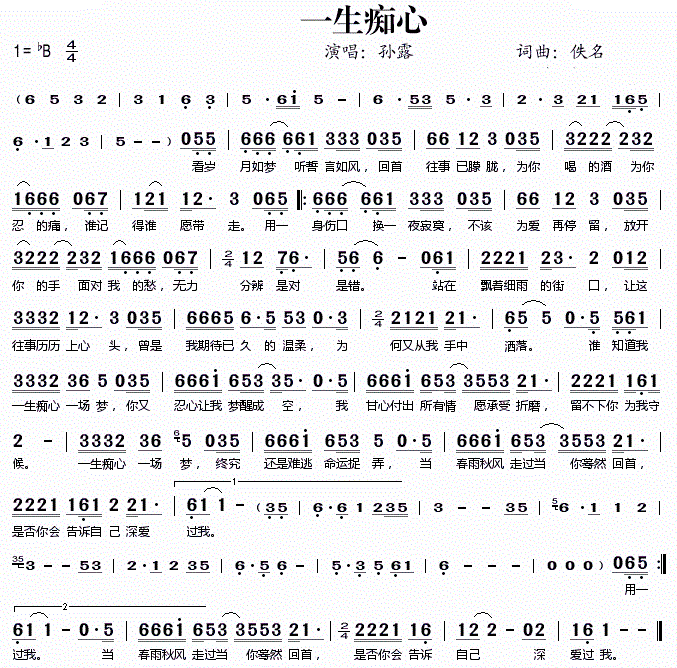 一生痴心
1= ♭B 4/4 演唱：孙露 词曲：佚名
( 6 5 3 2 | 3 1 6 3 | 5 · 6i 5 – | 6 · 53 5 · 3 | 2 · 3 21 165 |
6 · 1 2 3 | 5 – – ) 055 | 666 661 333 035 | 66 12 3 035 | 3222 232
看岁 月如梦 听誓 言如风，回首 往事 已朦 胧，为你 喝 的酒 为你
1666 067 | 121 12· 3 065 |: 666 661 333 035 | 66 12 3 035 |
忍 的痛，谁记 得谁 愿带 走。用一 身伤口 换一 夜寂寞，不该 为爱 再停 留，放开
3222 232 1666 067 | 2/4 12 76· | 56 6 – 061 | 2221 23· 2 012 |
你 的手 面对 我 的愁，无力 分辨 是对 是错。 站在 飘着细雨 的街 口，让这
3332 12· 3 035 | 6665 6·5 53 0·3 | 2/4 2121 21 | 65 5 0·5 561 |
往事历历 上心 头，曾是 我期待已 久 的 温柔，为 何又从我 手中 洒落。 谁 知道我
3332 36 5 035 | 666i 653 35· 0·5 | 666i 653 3553 21· | 2221 161 |
一生痴心 一场 梦，你又 忍心让我 梦醒成 空，我 甘心付出 所有情 愿承受 折磨，留不下你 为我守
2 – | 3332 36 6 5 035 | 666i 653 5 0·5 | 666i 653 3553 21· |
候。 一生痴心 一场 梦，终究 还是难逃 命运捉 弄，当 春雨秋风 走过当 你蓦然 回首，
1
2221 161 2 21· | 61 1 – (35 | 6·6 1 2 235 | 3 – – 35 | 5 6· 1 1 2 |
是否你会 告诉自 己 深爱 过我。
35 3 – – 53 | 2·1 2 35 | 6·5 6 – | 5·3 5 61 | 6 – – – | 0 0 0 ) 065 :|
用一
2
61 1 – 0·5 | 666i 653 3553 21· | 2/4 2221 16 | 12 2 – 02 | 16 1 – – ‖
过我。 当 春雨秋风 走过当 你蓦然 回首， 是否你会 告诉 自己 深 爱过 我。